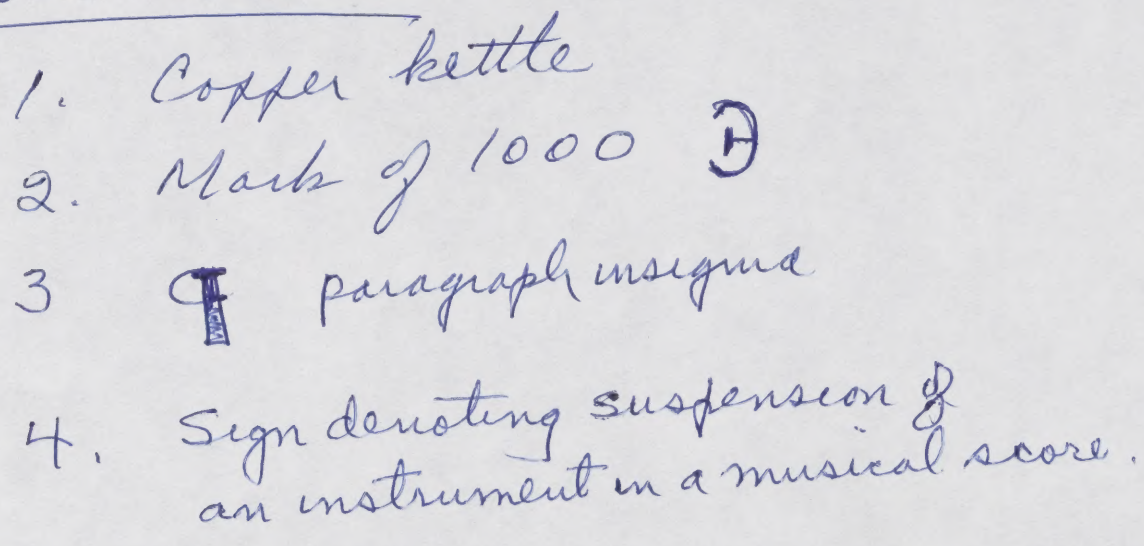 1. Copper kettle
2. Mark of 1000
3 ¶ paragraph insignia
4. Sign denoting suspension of
an instrument in a musical score.